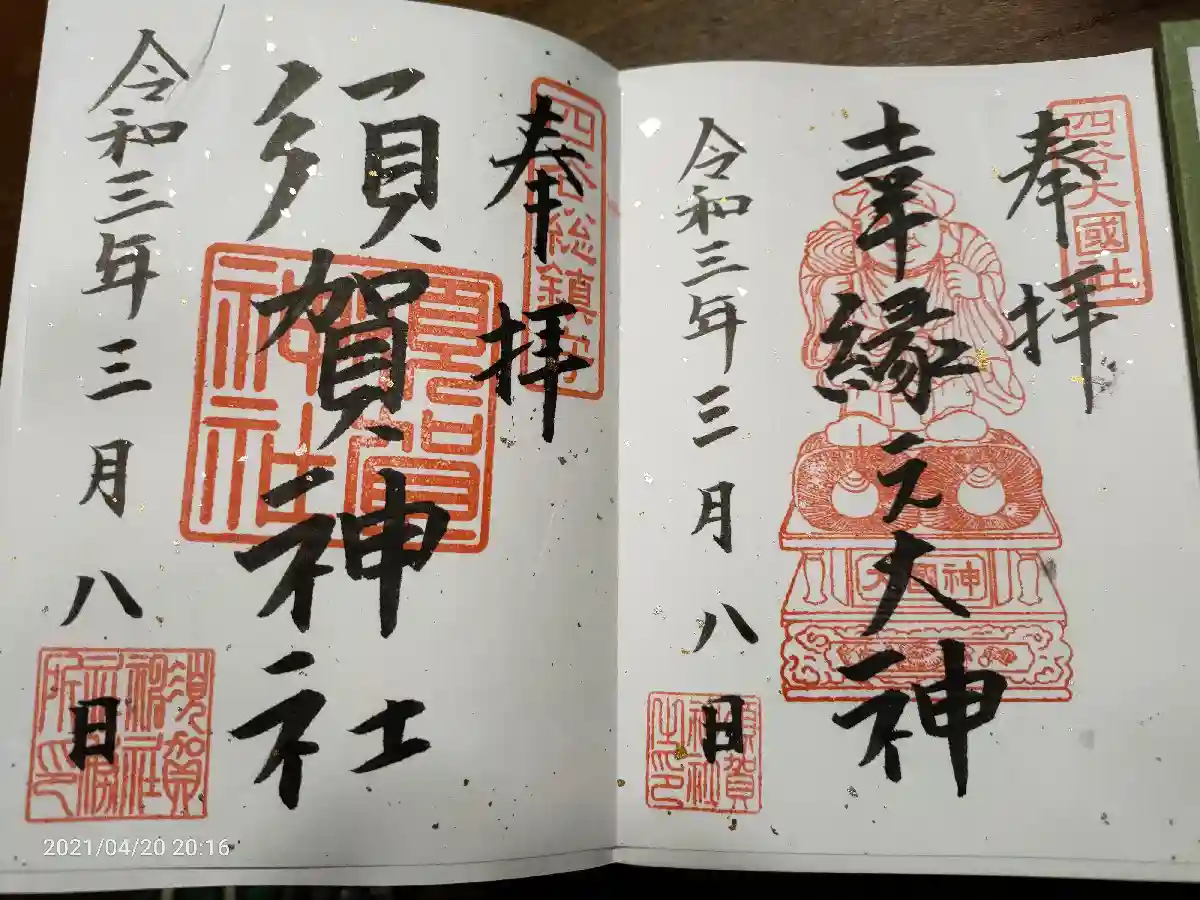 四谷大國社
奉拝
幸縁之大神
大國神
令和三年三月八日
須賀神社之印
四谷総鎮守
奉拝
須賀神社
須賀神社
令和三年三月八日
須賀神社社務所印
2021/04/20 20:16